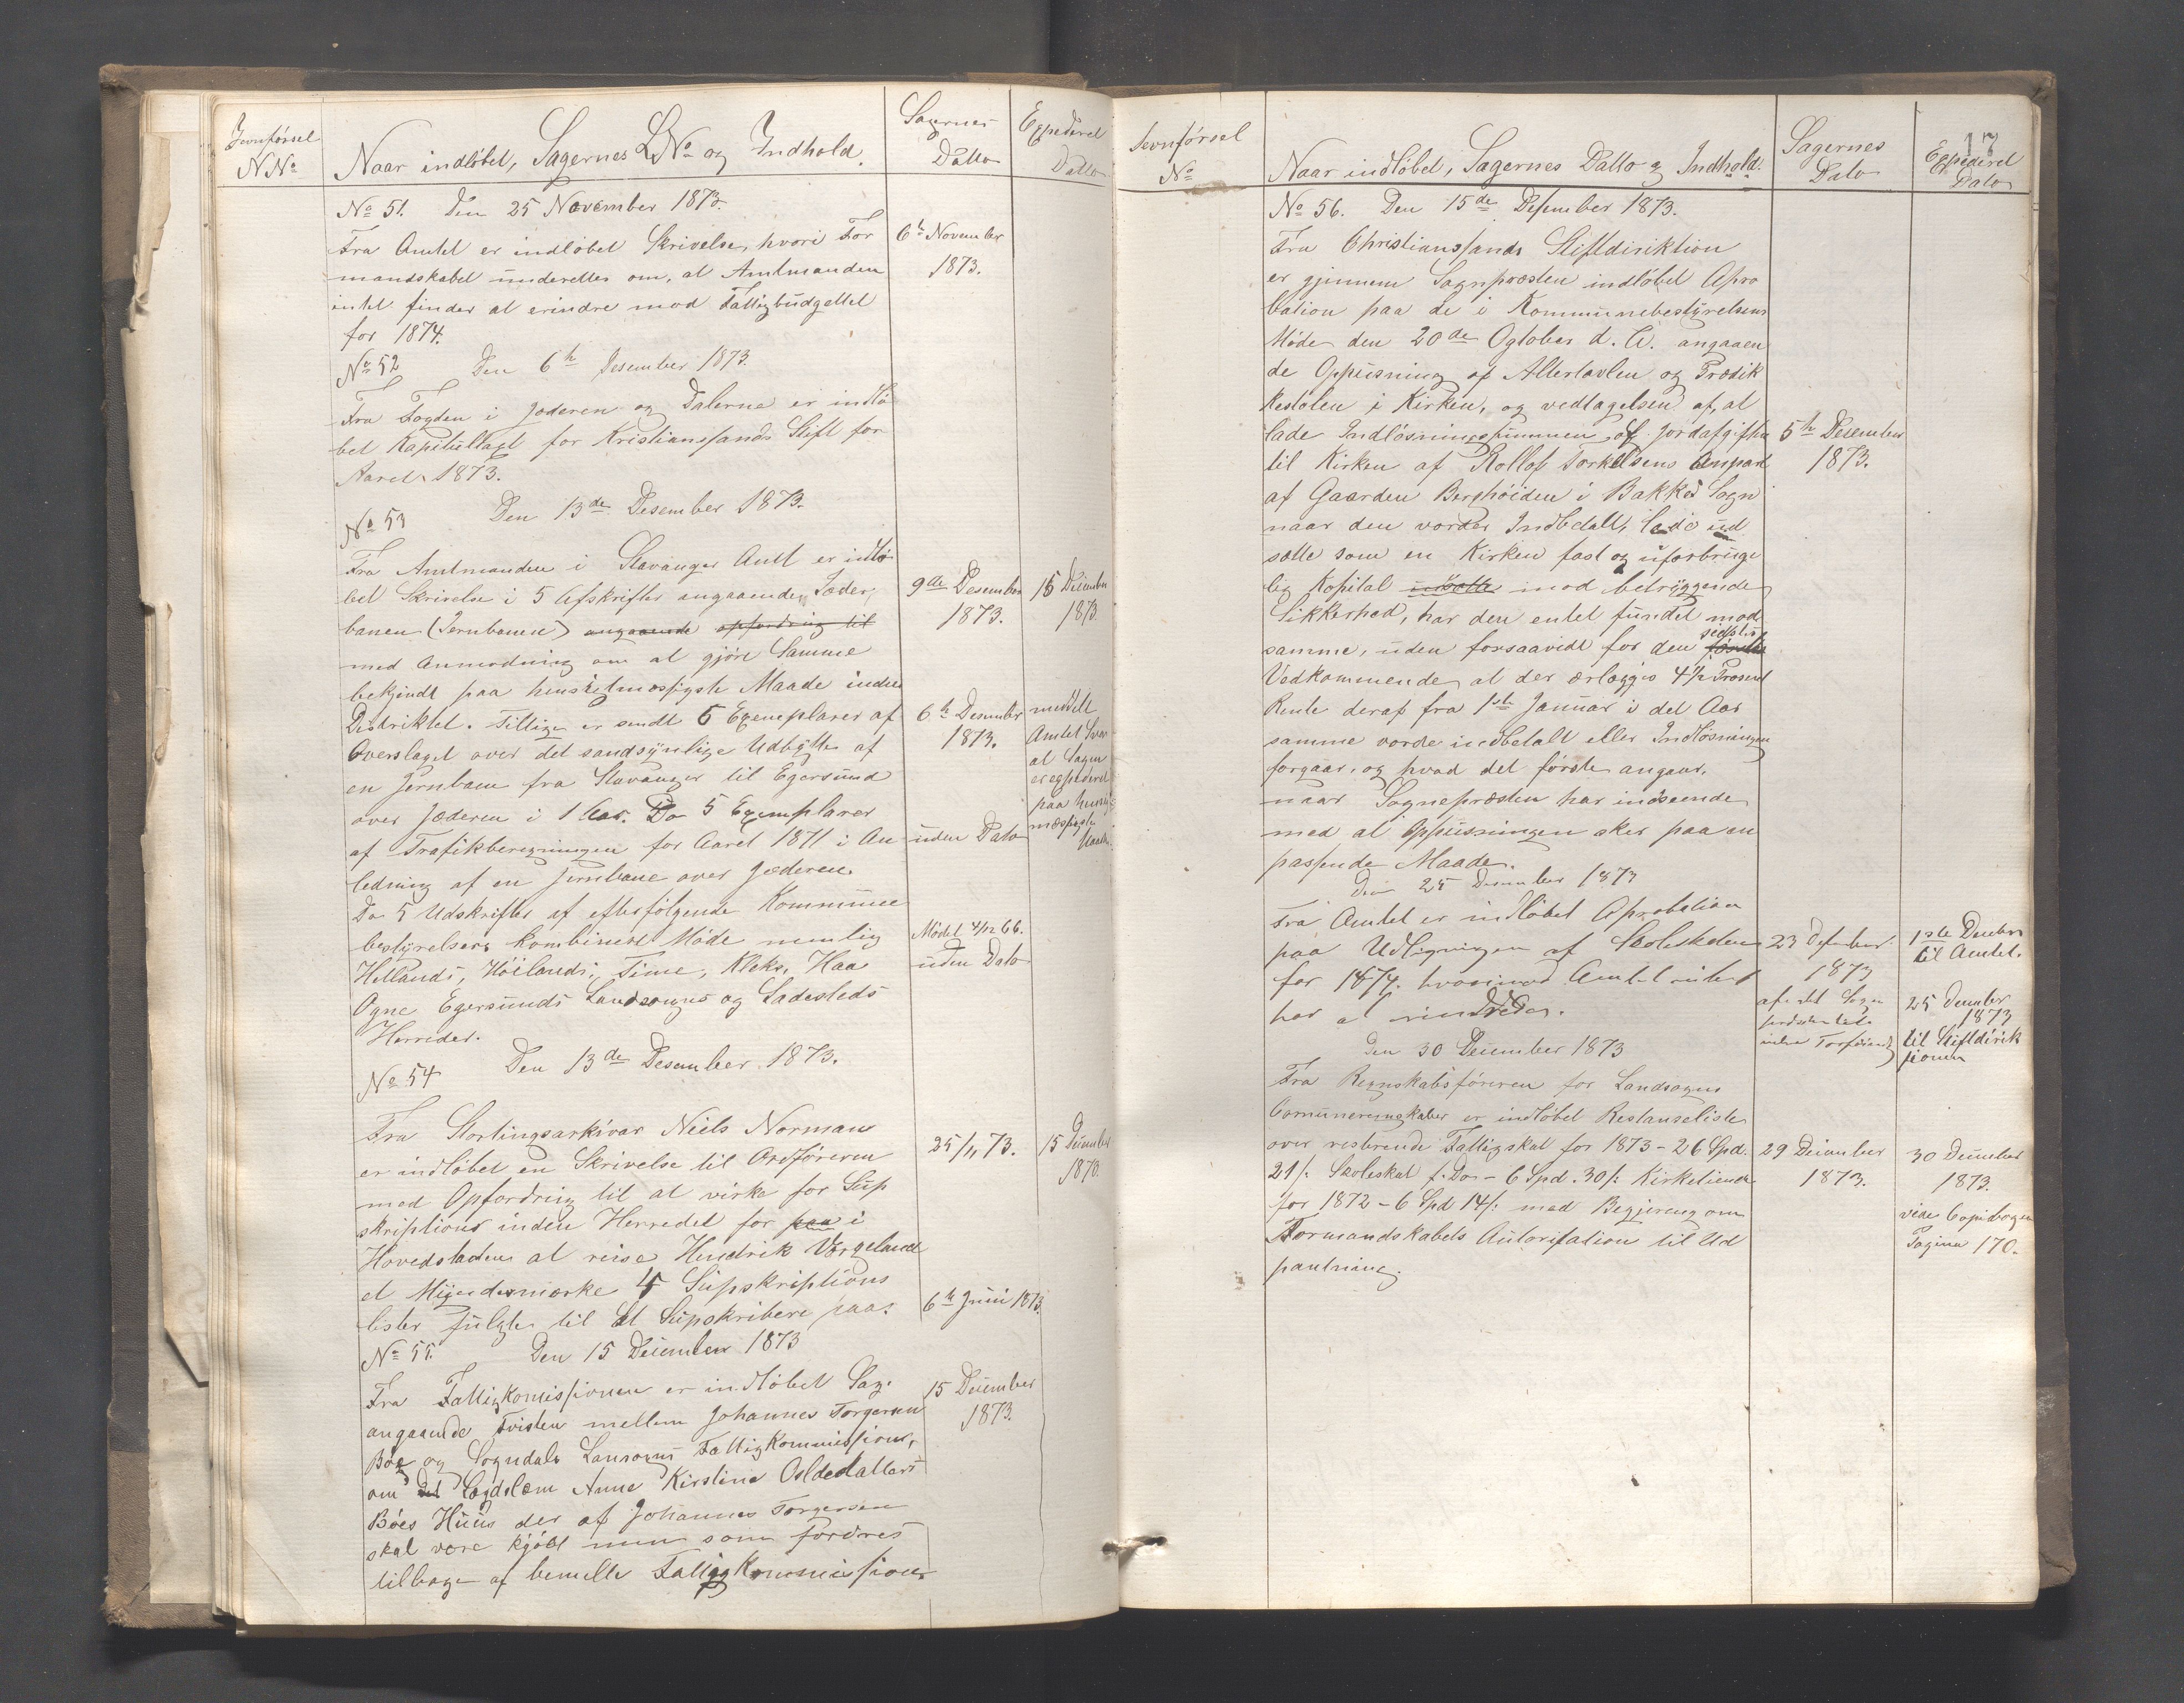 Jevnförsel
N No
Naar indlöbet, Sagernes LNo og Indhold.
Sagernes
Datto
Expederet
Datto
No 51. Den 25 November 1873.
Fra Amtet er indlöbet Skrivelse, hvori For
mandskabet underettes om, at Amtmanden
intet finder at erindre mod Fattigbudgettet
for 1874.
6te November
1873.
No 52 Den 6te Desember 1873.
Fra Fogden i Jæderen og Dalerne er indlö
bet Kapitultaxt for Kristianssands Stift for
Aaret 1873.
No 53 Den 13de Desember 1873.
Fra Amtmanden i Stavanger Amt er indlö
bet Skrivelse i 5 Afskrifter angaaende Jæder
banen (Jernbanen) angaaende opfordring til
med Anmodning om at gjöre Samme
bekjendt paa hensigtmæssigste Maade inden
Distriktet. Tillige er sendt 5 Exemplarer af
Overslaget over det sandsynlige Udbytte af
en Jernbane fra Stavanger til Egersund
over Jæderen i 1 Aar. Do 5 Exemplarer
af Trafikberegningen for Aaret 1871 i An
ledning af en Jernbane over Jæderen.
Do 5 Udskrifter af efterfölgende Kommune
bestyrelsers kombinerte Möde nemlig
Hetlands, Höilands, Time, Kleks, Haa
Ogne Egersunds Landsogns og Ladesteds
Herreder.
9de Desember
1873.
6te Desember
1873.
uden Dato
Mödet 4/12 66.
uden Dato
15 Desember
1873.
meddelt
Amtet Svar
at Sagen
er expederet
paa hensigt
mæssigste
Maade.
No 54 Den 13de Desember 1873.
Fra Stortingsarkivar Niels Norman
er indlöbet en Skrivelse til Ordföreren
med Opfordring til at virke for Sup
skriptions inden Herredet for paa i
Hovedstaden at reise Hendrik Vergeland
et Mindesmærke 4 Supskriptions
lister fulgte til at Supskribere paa.
25/11 73.
6te Juni 1873.
15 Desember
1873.
No 55. Den 15 Desember 1873
Fra Fattigkomissionen er indlöbet Sag.
angaaende Tvisten mellem Johannes Torgersen
Böe og Sogndals Lansogns Fattigkommission,
om det Lægdslem Anne Kirstine Osldedatters
Böes Huus der af Johannes Torgersen
skal være kjöbt men som fordres
tilbage af bemelte Fattigkommission
15 Desember
1873.
Jevnförsel
No
Naar indlöbet, Sagernes Datto og Indhold.
Sagernes
Dato
17
Expederet
Dato
No 56. Den 15de Desember 1873.
Fra Christianssands Stiftdirektion
er gjennem Sognpræsten indlöbet Apro
bation paa de i Kommunebestyrelsens
Möde den 20de Ogtober d. A. angaaen
de Oppusning af Altertavlen og Prædik
kestolen i Kirken, og vedtagelsen af, at
lade Indlösningssummen af Jordafgiften
til Kirken af Rollof Torkelsens Anpart
af Gaarden Berghöiden i Bakke Sogn
naar den vorder Indbetalt, lade ud
sætte som en Kirken fast og uforbruge
lig Kapital udsætte mod betryggende
Sikkerhed, har den entet fundet mod
samme, uden forsaavidt for den förste sidstes
Vedkommende at der erlægges 4 1/2 Prosent
Rente deraf fra 1ste Januar i det Aar
samme vorde indbetalt eller Indlösningen
forgaar. og hvad det förste angaar,
naar Sognepræsten har indseende
med at Oppusningen sker paa en
passende Maade.
5te Desember
1873.
Den 25 Desember 1873
Fra Amtet er indlöbet Aprobation
paa Udligningen af Skoleskatten
for 1874. hvorimod Amtet intet
har at erindre.
23 Desember
1873
1ste Desember
til Amtet.
25 Desember
1873
til Stiftdirek
sionen
Den 30 Desember 1873
Fra Regnskabsföreren for Landsogns
Comuneregnskaber er indlöbet Restanseliste
over resterende Fattigskat for 1873 - 26 Spd.
21/: Skoleskat f: Do - 6 Spd. 30/: Kirketiende
for 1872 - 6 Spd 14/: med Begjering om
Formandskabets Autorisation til Ud
pantning.
29 Desember
1873.
30 Desember
1873.
vide Copibogen
Pagina 170.